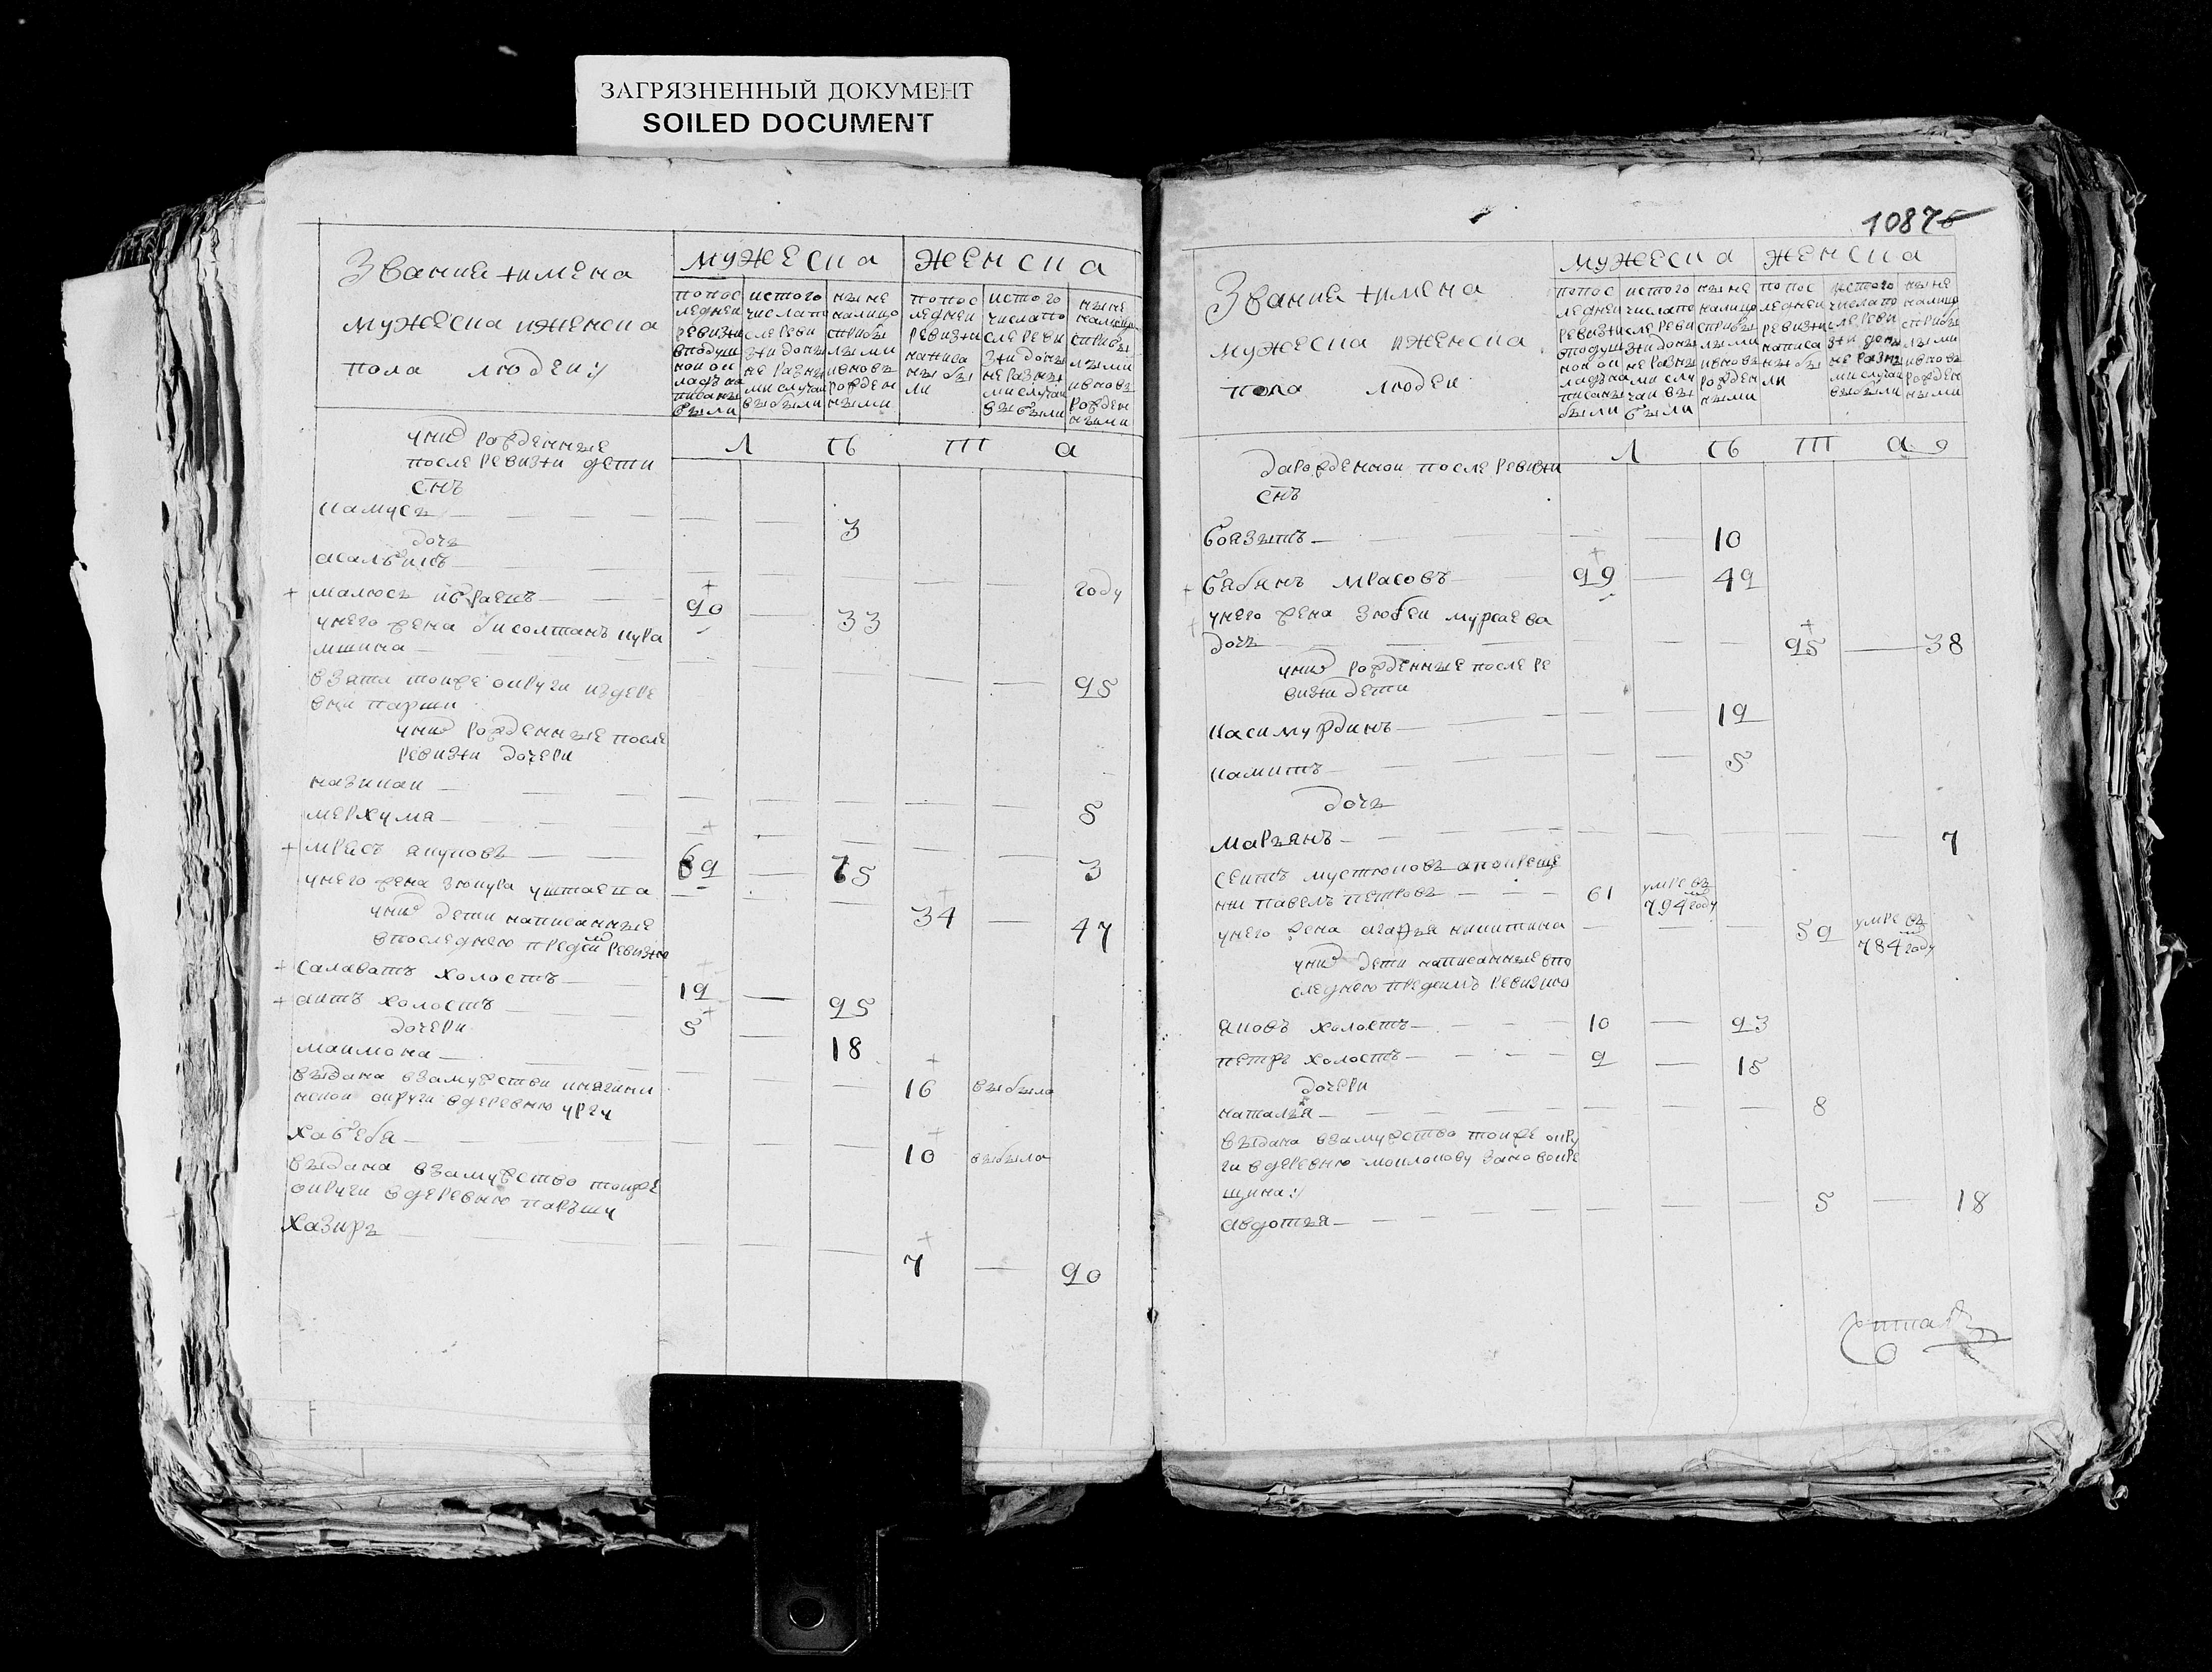 ЗАГРЯЗНЕННЫЙ ДОКУМЕНТ
SOILED DOCUMENT
Звании +имена
мужеска иженска
пола людеи:/
мужеска женска
попос
ледней
ревизти
вподуш
нои ок
ладъ на
писаны
были
истого
числапо
слереви
зти доны
не разны
ми случаи
выбыли
ныне
налицо
сприбы
лыми
ивновъ
рожден
ными
попос
ледней
ревизти
написа
ны бы
ли
истого
числапо
слереви
зти доны
не разны
ми случаи
выбыли
ныне
налицо
сприбы
лыми
ивновъ
рожден
ными
Л ѣ т а
униⷯ рожденные
после ревизти дети
снъ
камусъ 3
дочь
году
малюсъ ибраевъ 90 33
унего жена бисолтанъ кура
мшина 95
взята тоиже округи издере
вни парши
униⷯ рожденные после
ревизти дочери
назикаи 5
мерхумя 3
мрясъ якуповъ 69 75
унего жена зюкура уштаева 34 47
униⷯ дети написанные
впоследнею предсей ревизию
салаватъ холостъ 19 95
аитъ холостъ 5 18
дочери
маимона 16 выбыла
выдана взамужстви княгини
нскои округи вдеревню ургу
хабеба 10 выбыла
выдана взамужство тоиже
округи вдеревню паръшу
хазиръ 7 90
1087
Звании +имена
мужеска иженска
пола людеи
мужеска женска
попос
ледней
ревизти
вподуш
нои ок
ладъ на
писаны
были
истого
числапо
слереви
зти доны
не разны
ми слу
чаи вы
были
ныне
налицо
сприбы
лыми
ивновъ
рожден
ными
попос
ледней
ревизти
написа
ны бы
ли
истого
числапо
слереви
зти доны
не разны
ми случаи
выбыли
ныне
налицо
сприбы
лыми
ивновъ
рожден
ными
Л ѣ т а
дарожденнои после ревизти
снъ
боязытъ 10
бябянъ мрасовъ 99 49
унего жена зюбеи муртаева
дочь 95 38
униⷯ рожденные после ре
визти дети
касимурдинъ 19
камитъ 5
дочь
марзянъ 7
сеитъ мустюковъ апокреще
нии павелъ петровъ 61 умре въ 794 году
унего жена агафья никитина 59 умре въ 784 году
униⷯ дети написанные впо
следнею предеимъ ревизию
яковъ холостъ 10 93
петръ холостъ 9 15
дочери
наталья 8
выдана взамужство тоиже окру
ги вдеревню маклакову зановокре
щина:/
авдотья 5 18